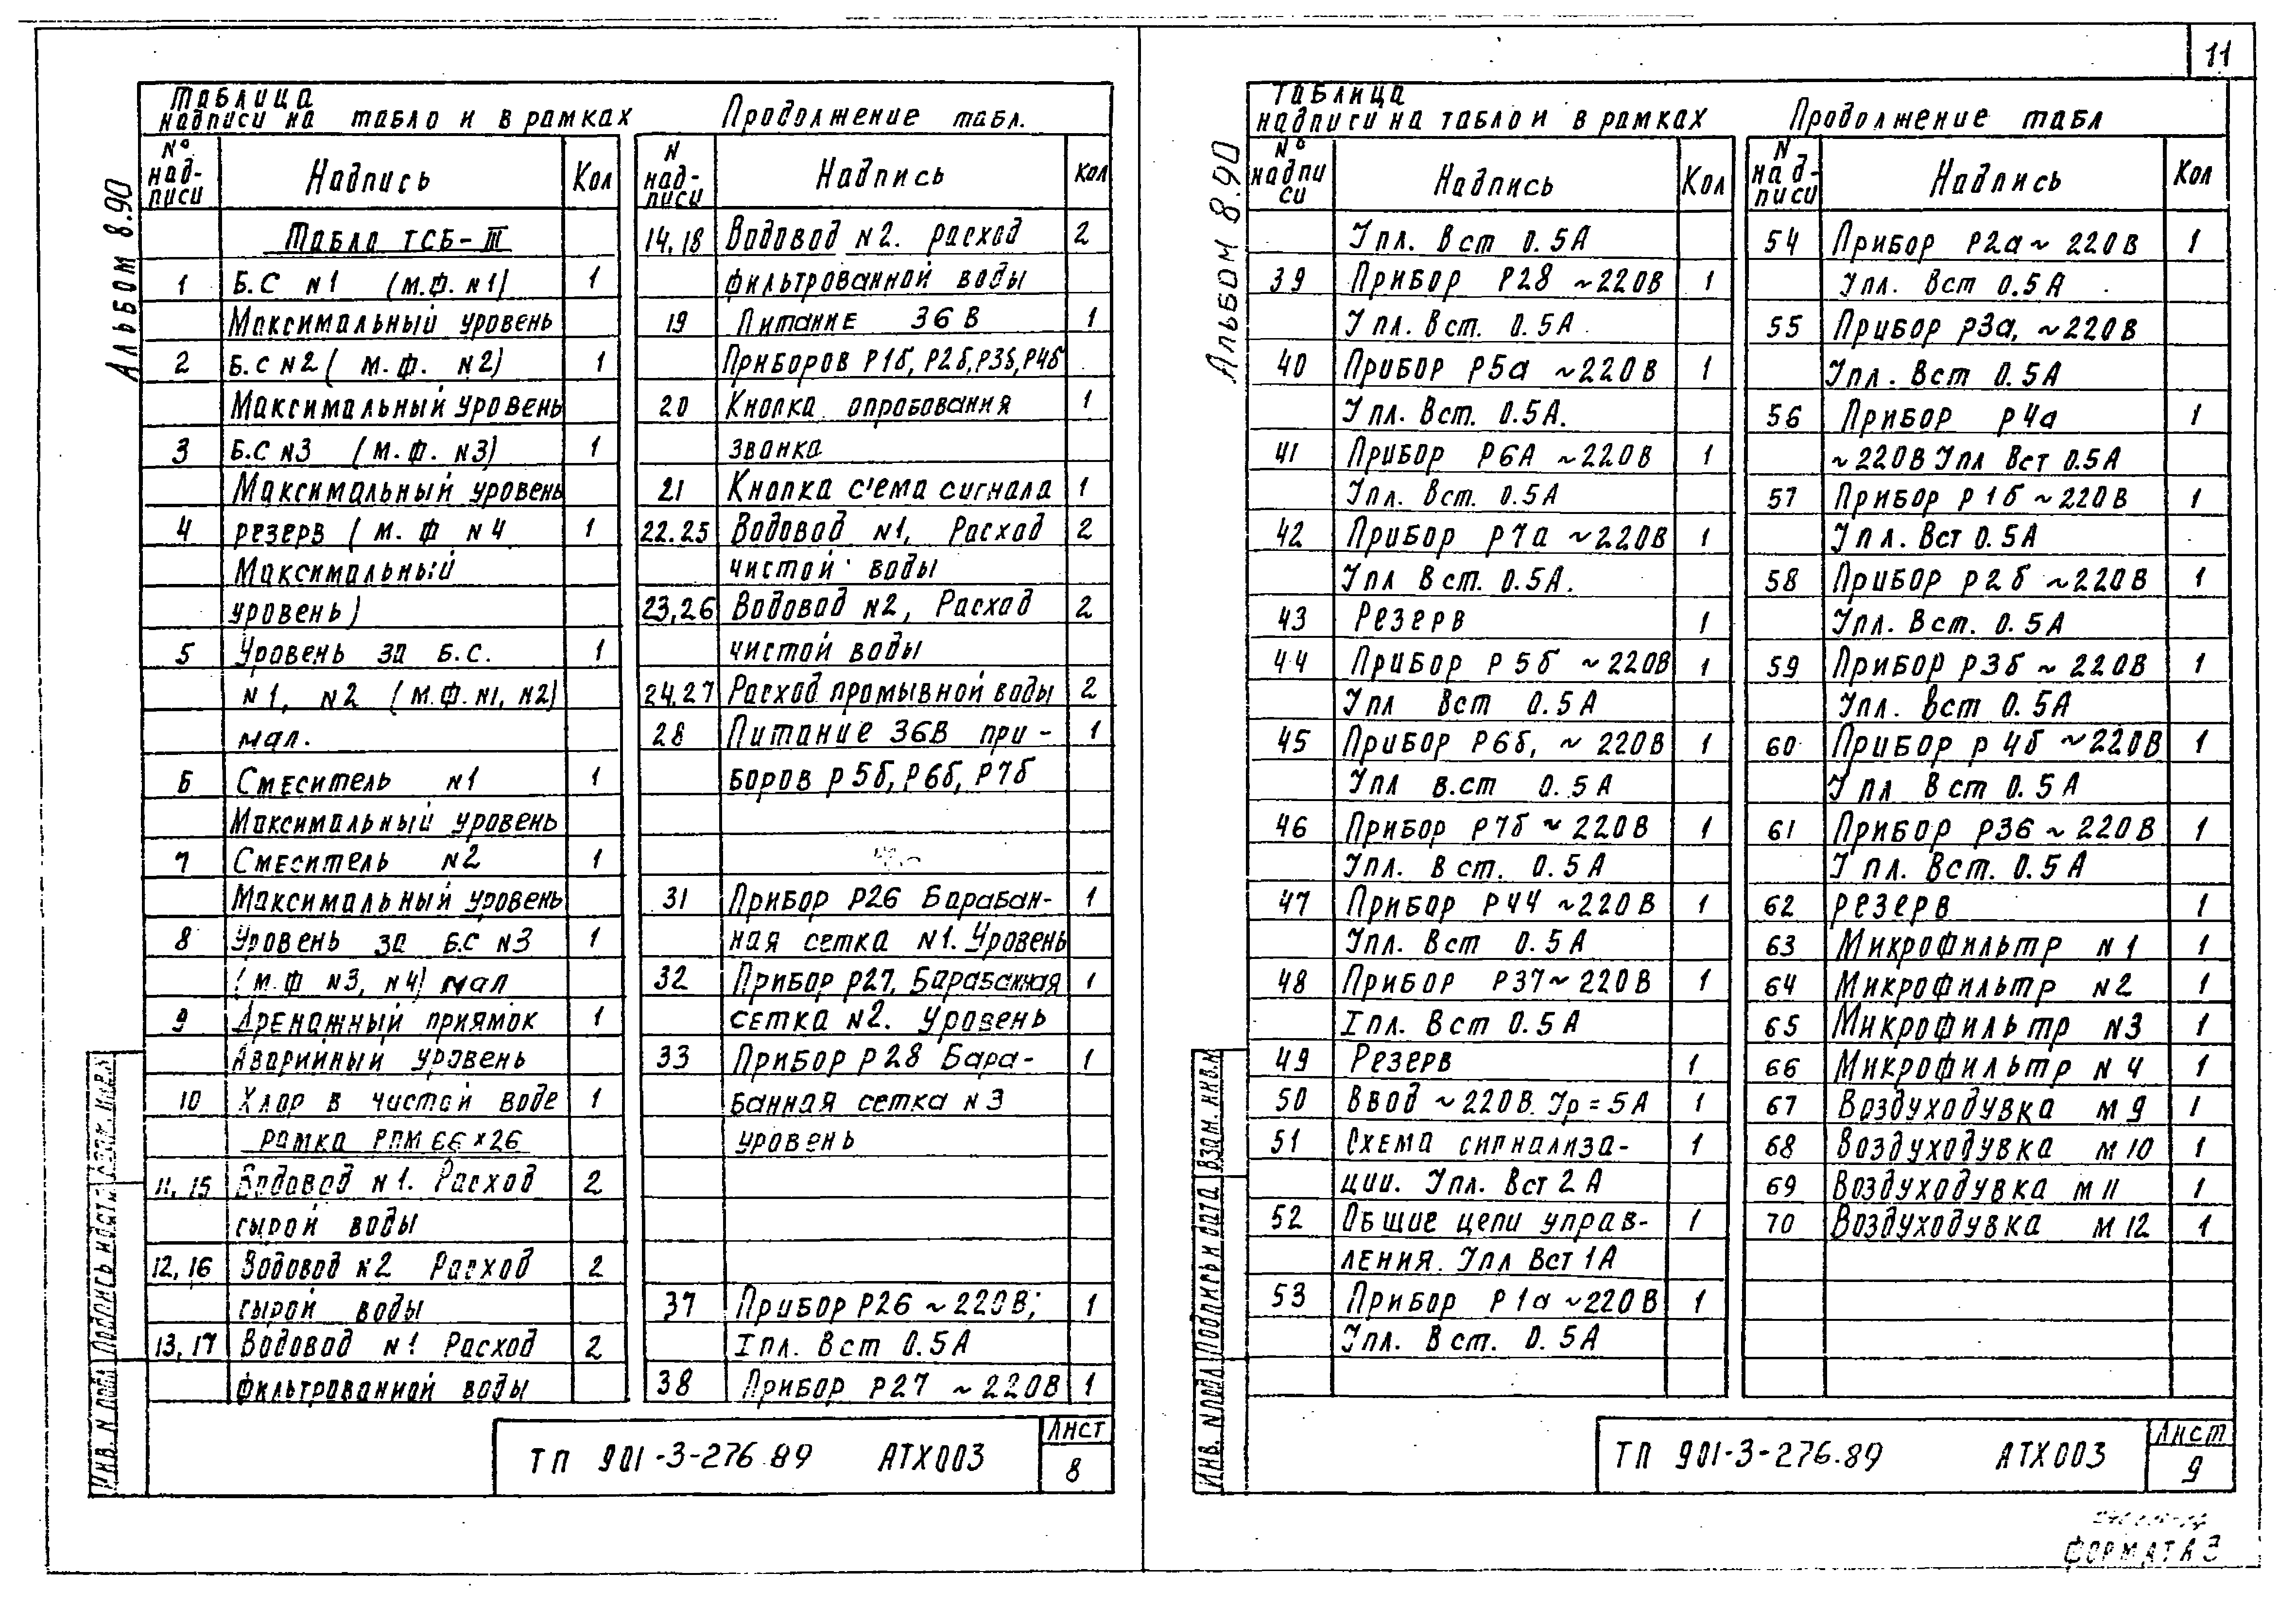 11
Альбом 8.90
Таблица
надписи на табло и в рамках
№ надписи Надпись Кол
Табло ТСБ-III
1 Б.С №1 (м.ф. №1) 1
Максимальный уровень
2 Б.С №2 (м.ф. №2) 1
Максимальный уровень
3 Б.С №3 (м.ф. №3) 1
Максимальный уровень
4 резерв (м.ф №4 1
Максимальный
уровень)
5 Уровень за Б.С. 1
№1, №2 (м.ф. №1, №2)
мал.
6 Смеситель №1 1
Максимальный уровень
7 Смеситель №2 1
Максимальный уровень
8 Уровень за Б.С №3 1
(м.ф №3, №4) мал
9 Дренажный приямок 1
Аварийный уровень
10 Хлор в чистой воде 1
рамка РПМ 66×26
11, 15 Водовод №1. Расход 2
сырой воды
12, 16 Водовод №2 Расход 2
сырой воды
13, 17 Водовод №1 Расход 2
фильтрованной воды
Продолжение табл.
N надписи Надпись Кол
14, 18 Водовод №2. расход 2
фильтрованной воды
19 Питание 36В 1
Приборов Р1б, Р2б, Р3б, Р4б
20 Кнопка опробования 1
звонка
21 Кнопка с'ема сигнала 1
22.25 Водовод №1, Расход 2
чистой воды
23, 26 Водовод №2, Расход 2
чистой воды
24, 27 Расход промывной воды 2
28 Питание 36В при- 1
боров Р5б, Р6б, Р7б
31 Прибор Р26 Барабан- 1
ная сетка №1. Уровень
32 Прибор Р27, Барабанная 1
сетка №2. Уровень
33 Прибор Р28 Бара- 1
банная сетка №3
уровень
37 Прибор Р26 ~220В; 1
Iпл. Вст 0.5А
38 Прибор Р27 ~220В 1
ТП 901-3-276.89 АТХ003
Лист
8
Инв. N подл Подпись и дата Взам. инв.N
Альбом 8.90
Таблица
надписи на табло и в рамках
№ надписи Надпись Кол
Iпл. Вст 0.5А
39 Прибор Р28 ~220В 1
Iпл. Вст. 0.5А
40 Прибор Р5а ~220В 1
Iпл. Вст. 0.5А.
41 Прибор Р6А ~220В 1
Iпл. Вст. 0.5А
42 Прибор Р7а ~220В 1
Iпл Вст. 0.5А.
43 Резерв 1
44 Прибор Р5б ~220В 1
Iпл Вст 0.5А
45 Прибор Р6б, ~220В 1
Iпл в.ст 0.5А
46 Прибор Р7б ~220В 1
Iпл. Вст. 0.5А
47 Прибор Р44 ~220В 1
Iпл. Вст 0.5А
48 Прибор Р37 ~220В 1
Iпл. Вст 0.5А
49 Резерв 1
50 Ввод ~220В. Iр=5А 1
51 Схема сигнализа- 1
ции. Iпл. Вст 2А
52 Общие цепи управ- 1
ления. Iпл Вст 1А
53 Прибор Р1а ~220В 1
Iпл. Вст. 0.5А
Продолжение табл
N надписи Надпись Кол
54 Прибор Р2а ~220В 1
Iпл. Вст 0.5А
55 Прибор Р3а, ~220В
Iпл. Вст 0.5А
56 Прибор Р4а 1
~220В Iпл Вст 0.5А
57 Прибор Р1б ~220В 1
Iпл. Вст 0.5А
58 Прибор Р2б ~220В 1
Iпл. Вст. 0.5А
59 Прибор Р3б ~220В 1
Iпл. Вст 0.5А
60 Прибор Р4б ~220В 1
Iпл Вст 0.5А
61 Прибор Р36 ~220В 1
Iпл. Вст. 0.5А
62 резерв 1
63 Микрофильтр №1 1
64 Микрофильтр №2 1
65 Микрофильтр №3 1
66 Микрофильтр №4 1
67 Воздуходувка М9 1
68 Воздуходувка М10 1
69 Воздуходувка М11 1
70 Воздуходувка М12 1
ТП 901-3-276.89 АТХ003
Лист
9
Инв. N подл Подпись и дата Взам. инв.N
Формат А3